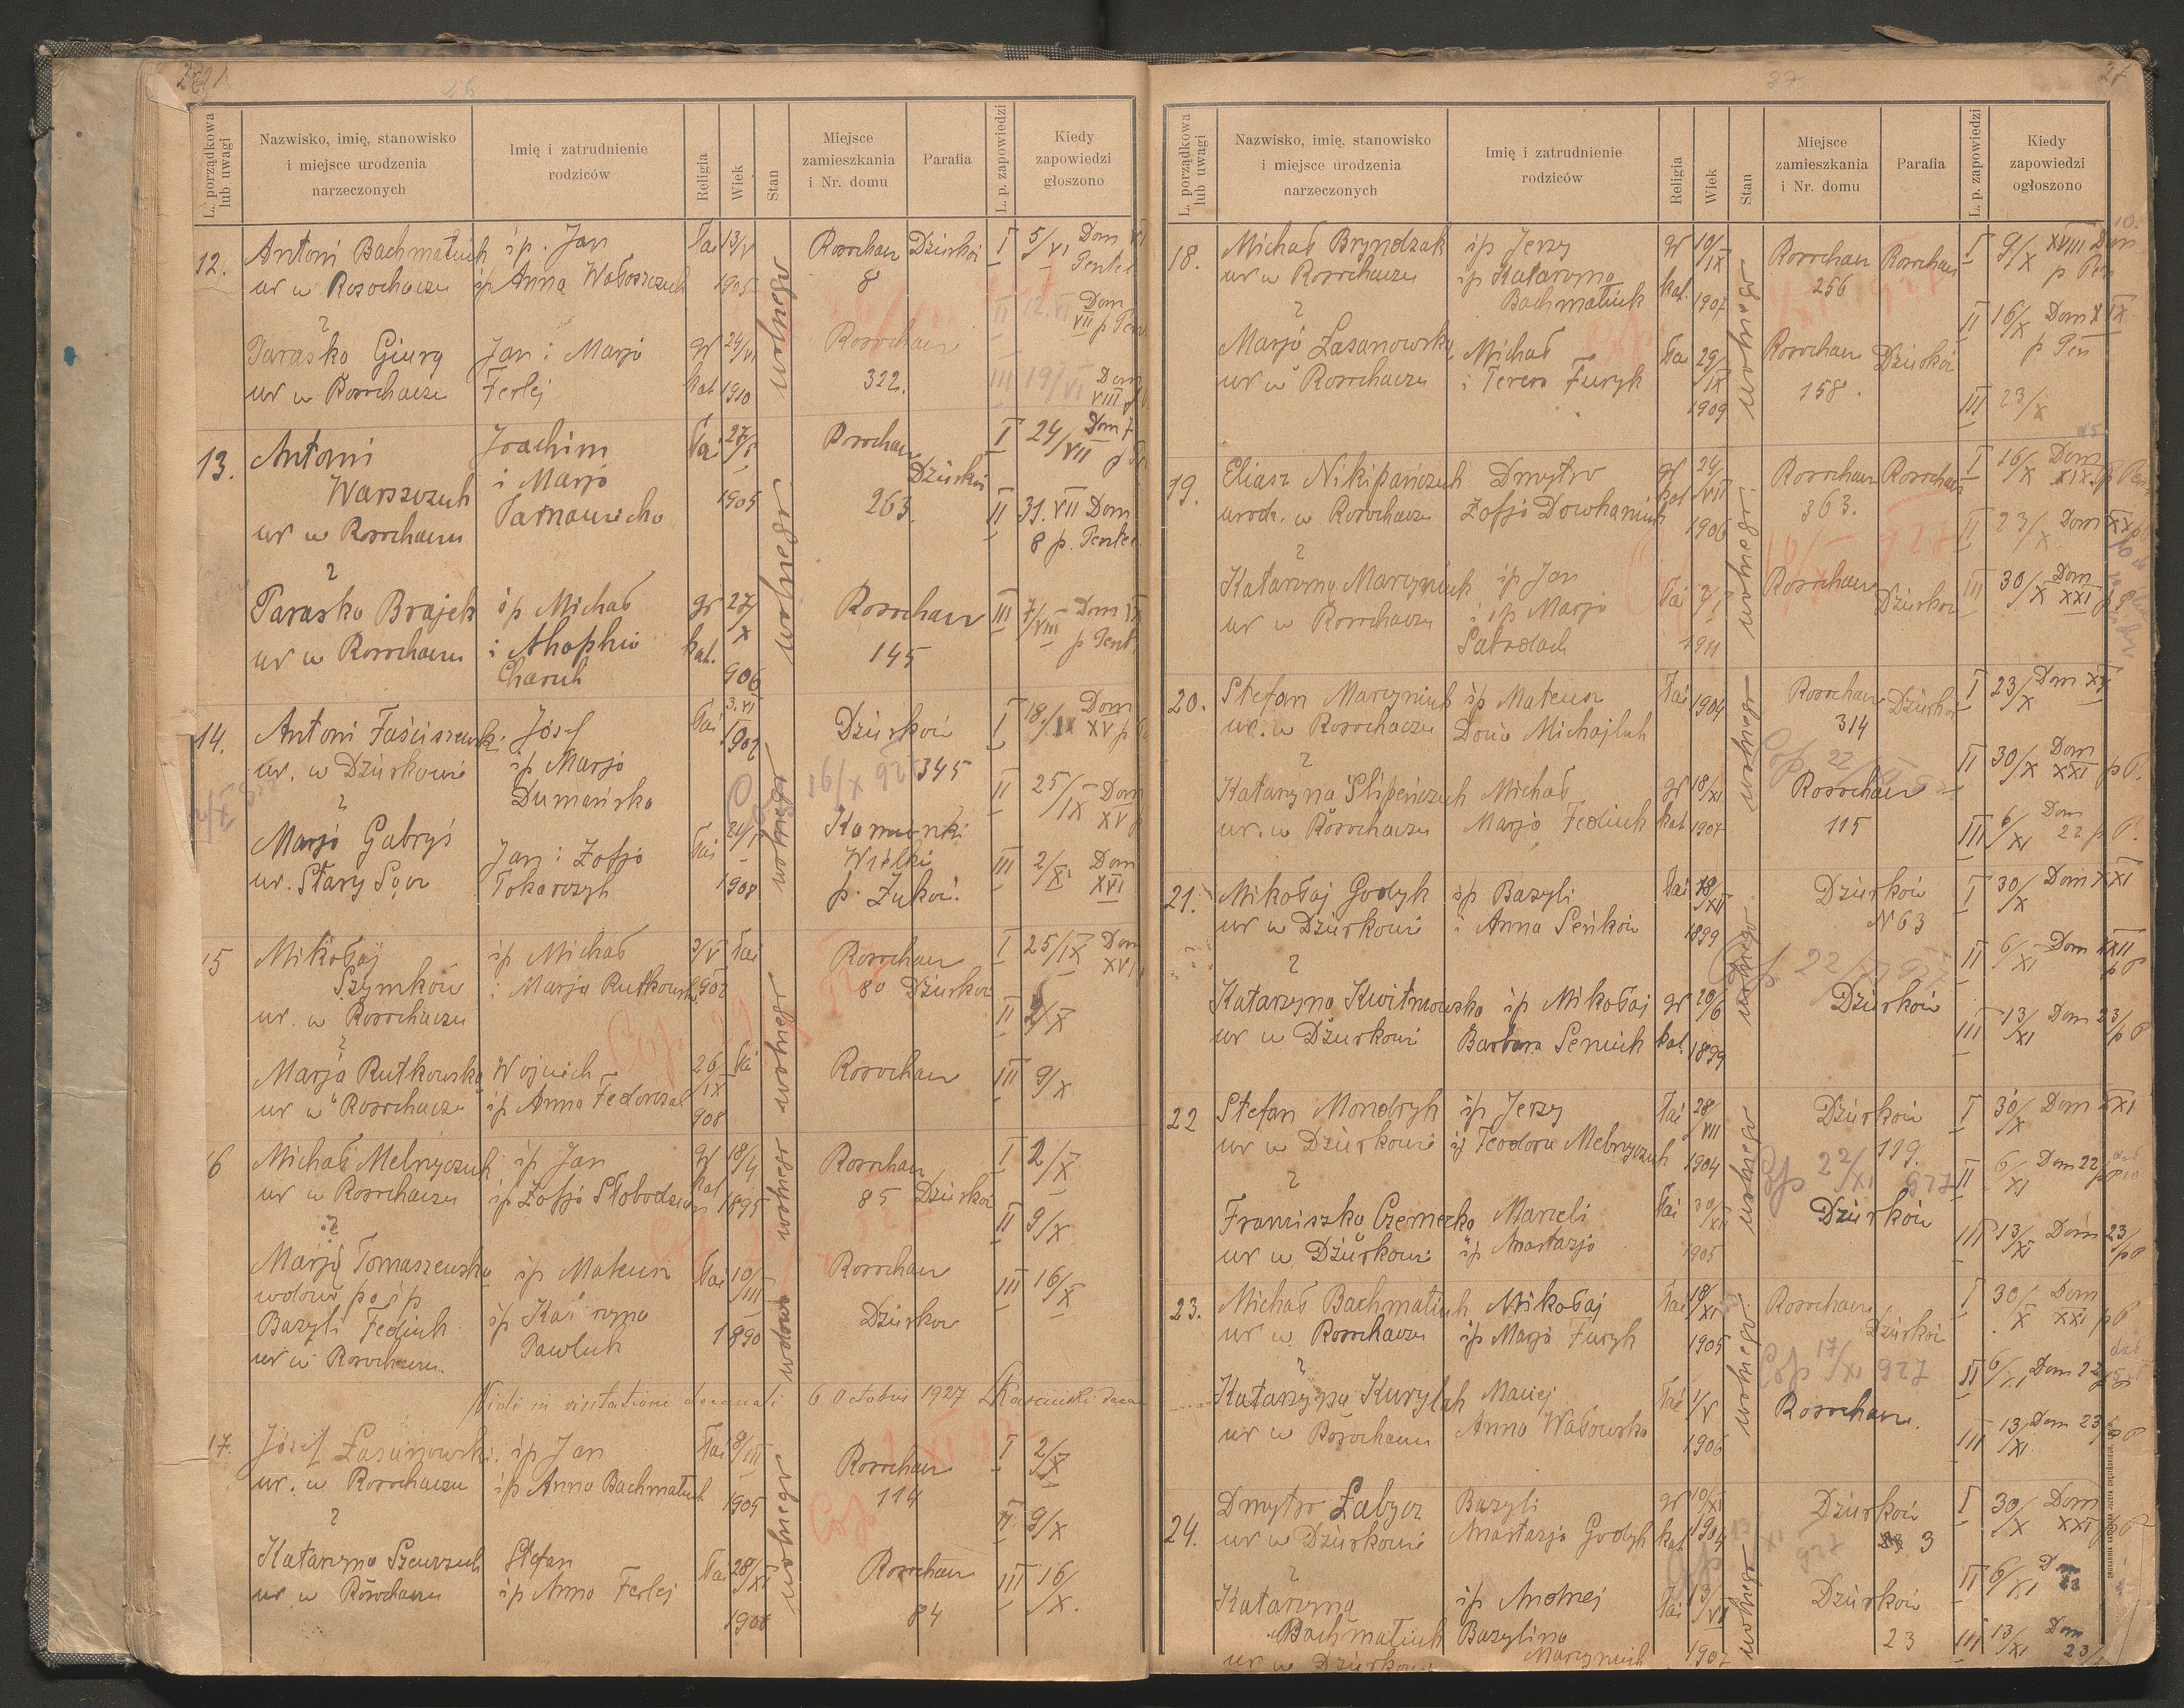 26
27
L. porządkowa lub uwagi
Nazwisko, imię, stanowisko
i miejsce urodzenia
narzeczonych
Imię i zatrudnienie
rodziców
Religia
Wiek
Stan
Miejsce
zamieszkania
i Nr. domu
Parafia
L. p. zapowiedzi
Kiedy
zapowiedzi
głoszono
12. Antoni Bachmatiuk śp. Jan łac 13/V Rosochacz Dżurków I 5/VI Dom
ur w Rosochaczu śp Anna Wołoszczuk 1905 8
wolnego
II 12.VI Dom VII p
Paraska Giurg Jan i Marja gr 24/VI Rosochacz
ur w Rosochaczu Ferlej kat 1910 322. III 19/VI Dom VIII
13. Antoni Joachim łac 27/ Rosochacz I 24/VII Dom 7
Warszczuk i Marja Dżurków
ur w Rosochaczu Tarnawska 1905 263. II 31.VII Dom
wolnego
8 p. Pentec
Paraska Brajek śp Michał gr 27/X Rosochacz III 7/VIII Dom IX
ur w Rosochaczu i Ahaphia kat. 145 p Pent
Charuk 906
14. Antoni Faściszewski Józef łac 3.VI Dżurków I 18/IX Dom
ur. w Dżurkowie śp Marja 1902 345 XV p
Dumańska II 25/IX Dom
16/X 927
wolnego
Marja Gabryś Jan i Zofja łac 24/ Kamionki
ur. Stary Sącz Tokarczyk 1908 Wielki III 2/X Dom
p. Żuków. XVI
15 Mikołaj śp Michał 3/V łac Rosochacz I 25/IX Dom
Szymków i Marja Rutkowska 902 80 Dżurków XVI
ur. w Rosochaczu II 2/X
wolnego
Marja Rutkowska Wojciech 26/IX łac Rosochacz III 9/X
ur w Rosochaczu śp Anna Fedorczak 908
16 Michał Melnyczuk śp Jan gr 18/4 Rosochacz I 2/X
ur w Rosochaczu śp Zofja Słobodzian kat 1895 85 Dżurków
wolnego
II 9/X
Marja Tomaszewska śp Mateusz łac 10/III Rosochacz
wdowa po śp III 16/X
Bazyli Fediuk śp Katarzyna 1890 Dżurków
ur w Rosochaczu. Pawluk
wdowa
Vidi in visitatione decanali 6 Octobris 1927
17. Józef Łasanowski śp Jan łac 8/III Rosochacz I 2/X
ur. w Rosochaczu śp Anna Bachmatiuk 1905 114
wolnego
II 9/X
Katarzyna Szewczuk Stefan łac 28/XI Rosochacz
ur w Rosochaczu śp Anna Ferlej 1908 84 III 16/X.
27
27
L. porządkowa lub uwagi
Nazwisko, imię, stanowisko
i miejsce urodzenia
narzeczonych
Imię i zatrudnienie
rodziców
Religia
Wiek
Stan
Miejsce
zamieszkania
i Nr. domu
Parafia
L. p. zapowiedzi
Kiedy
zapowiedzi
ogłoszono
18. Michał Bryndzak śp Jerzy gr 10/IX Rosochacz Rosochacz I 9/X XVIII Dom
ur w Rosochaczu śp Katarzyna kat. 1907 256 p Pen
Bachmatiuk
wolnego
II 16/X Dom XIX
Marja Łasanowska Michał łac 29/IX Rosochacz Dżurków p Pen
ur w Rosochaczu i Teresa Furyk 1909 158. III 23/X
19. Eliasz Nikipańczuk Dmytro gr 24/VII Rosochacz Rosochacz I 16/X Dom XIX p Pen
urodz. w Rosochaczu Zofja Dowhaniuk kat 1906 363. II 23/X Dom XX p
wolnego
Katarzyna Marcyniuk śp Jan łac Rosochacz Dżurków III 30/X Dom XXI p
ur w Rosochaczu i śp Marja
1911
20. Stefan Marcyniuk śp Mateusz łac 1904 Rosochacz Dżurków I 23/X Dom XX
ur. w Rosochaczu Docia Michajluk 314
wolnego
II 30/X Dom XXI p P.
Katarzyna Slipeńczuk Michał gr 18/XI Rosochacz
ur. w Rosochaczu Marja Fediuk kat 1907 115 III 6/XI Dom 22 p P.
21. Mikołaj Godyk śp Bazyli łac 18/XII Dżurków I 30/X Dom XXI
ur w Dżurkowie i Anna Seńków 1899 N 63
wolnego
22/XI 927
II 6/XI Dom XXII p P
Katarzyna Kwitnowska śp Mikołaj gr 20/6 Dżurków
ur w Dżurkowie Barbara Seniuk kat. 1899 III 13/XI Dom 23/p P
22 Stefan Mondryk śp Jerzy łac 28/VII Dżurków I 30/X Dom XXI
ur w Dżurkowie śp Teodora Melnyczuk 1904 119.
wolnego
Cop 22/XI 927
II 6/XI Dom 22 p P
Franciszka Czernecka Marceli łac 30/XII Dżurków
ur w Dżurkowie śp Anastazja 1905 III 13/XI Dom 23/p P
23. Michał Bachmatiuk Mikołaj łac 18/XI Rosochacz I 30/X Dom XXI p P
ur w Rosochaczu śp Marja Furyk 1905 Dżurków
wolnego
Cop 17/XI 927
II 6/XI Dom 22
Katarzyna Kuryluk Maciej łac 1/V Rosochacz.
ur w Rosochaczu Anna Wałowska 1906 III 13/XI. Dom 23 p P
24. Dmytro Łabycz Bazyli gr 10/XI Dżurków I 30/X Dom XXI p P
ur w Dżurkowie Anastazja Godyk kat. 1904 3
wolnego
II 6/XI Dom 22
Katarzyna śp Andrzej łac 13/VI Dżurków
Bachmatiuk Bazylina 23 III 13/XI Dom 23
ur w Dżurkowie Marcyniuk 1907